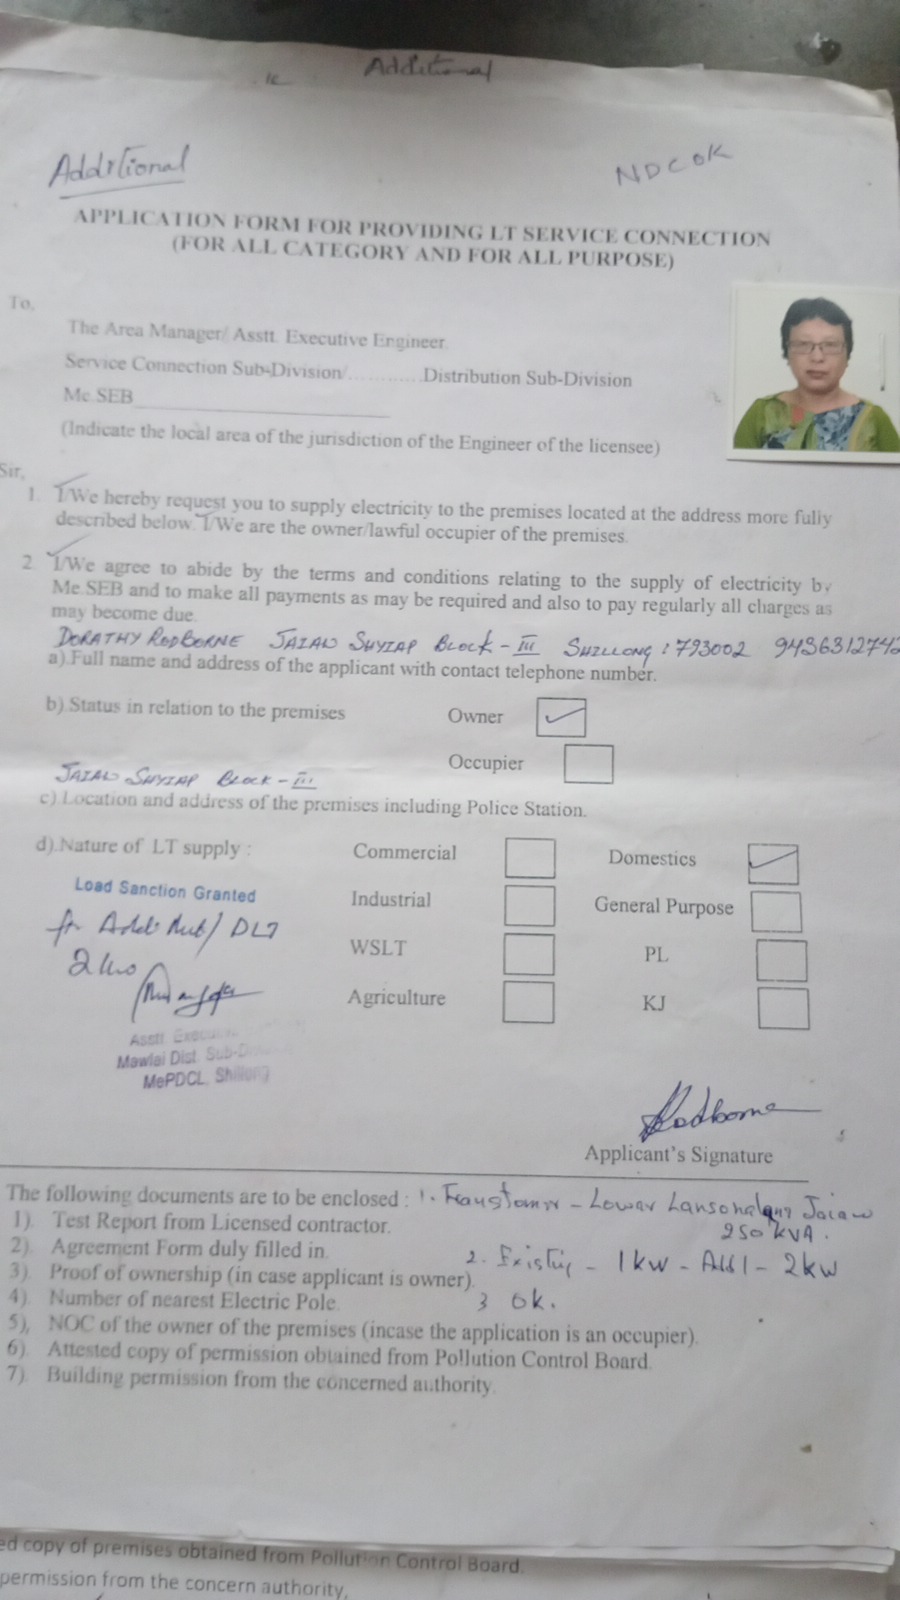 Additional
Additional
NDC OK
APPLICATION FORM FOR PROVIDING LT SERVICE CONNECTION
(FOR ALL CATEGORY AND FOR ALL PURPOSE)
To,
The Area Manager/ Asstt. Executive Engineer
Service Connection Sub-Division/............Distribution Sub-Division
Me.SEB
(Indicate the local area of the jurisdiction of the Engineer of the licensee)
Sir,
1. I/We hereby request you to supply electricity to the premises located at the address more fully
described below. I/We are the owner/lawful occupier of the premises.
2. I/We agree to abide by the terms and conditions relating to the supply of electricity by
Me.SEB and to make all payments as may be required and also to pay regularly all charges as
may become due.
DORATHY RODBORNE JAIAW SHYIAP BLOCK - III SHILLONG : 793002 9436312742
a).Full name and address of the applicant with contact telephone number.
b).Status in relation to the premises Owner
Occupier
JAIAW SHYIAP BLOCK - III
c).Location and address of the premises including Police Station.
d).Nature of LT supply : Commercial Domestics
Load Sanction Granted
Industrial General Purpose
DLT
WSLT PL
2 kw
Agriculture KJ
Asstt. Executive
Mawlai Dist. Sub-Division
MePDCL, Shillong
Rodborne
Applicant's Signature
The following documents are to be enclosed : 1. Transformer - Lower Lansonalane Jaiaw
1). Test Report from Licensed contractor. 250 KVA.
2). Agreement Form duly filled in. 2. Existing - 1 kw - Addl - 2 kw
3). Proof of ownership (in case applicant is owner).
4). Number of nearest Electric Pole. 3 ok.
5), NOC of the owner of the premises (incase the application is an occupier).
6). Attested copy of permission obtained from Pollution Control Board.
7). Building permission from the concerned authority.
ed copy of premises obtained from Pollution Control Board.
permission from the concern authority.